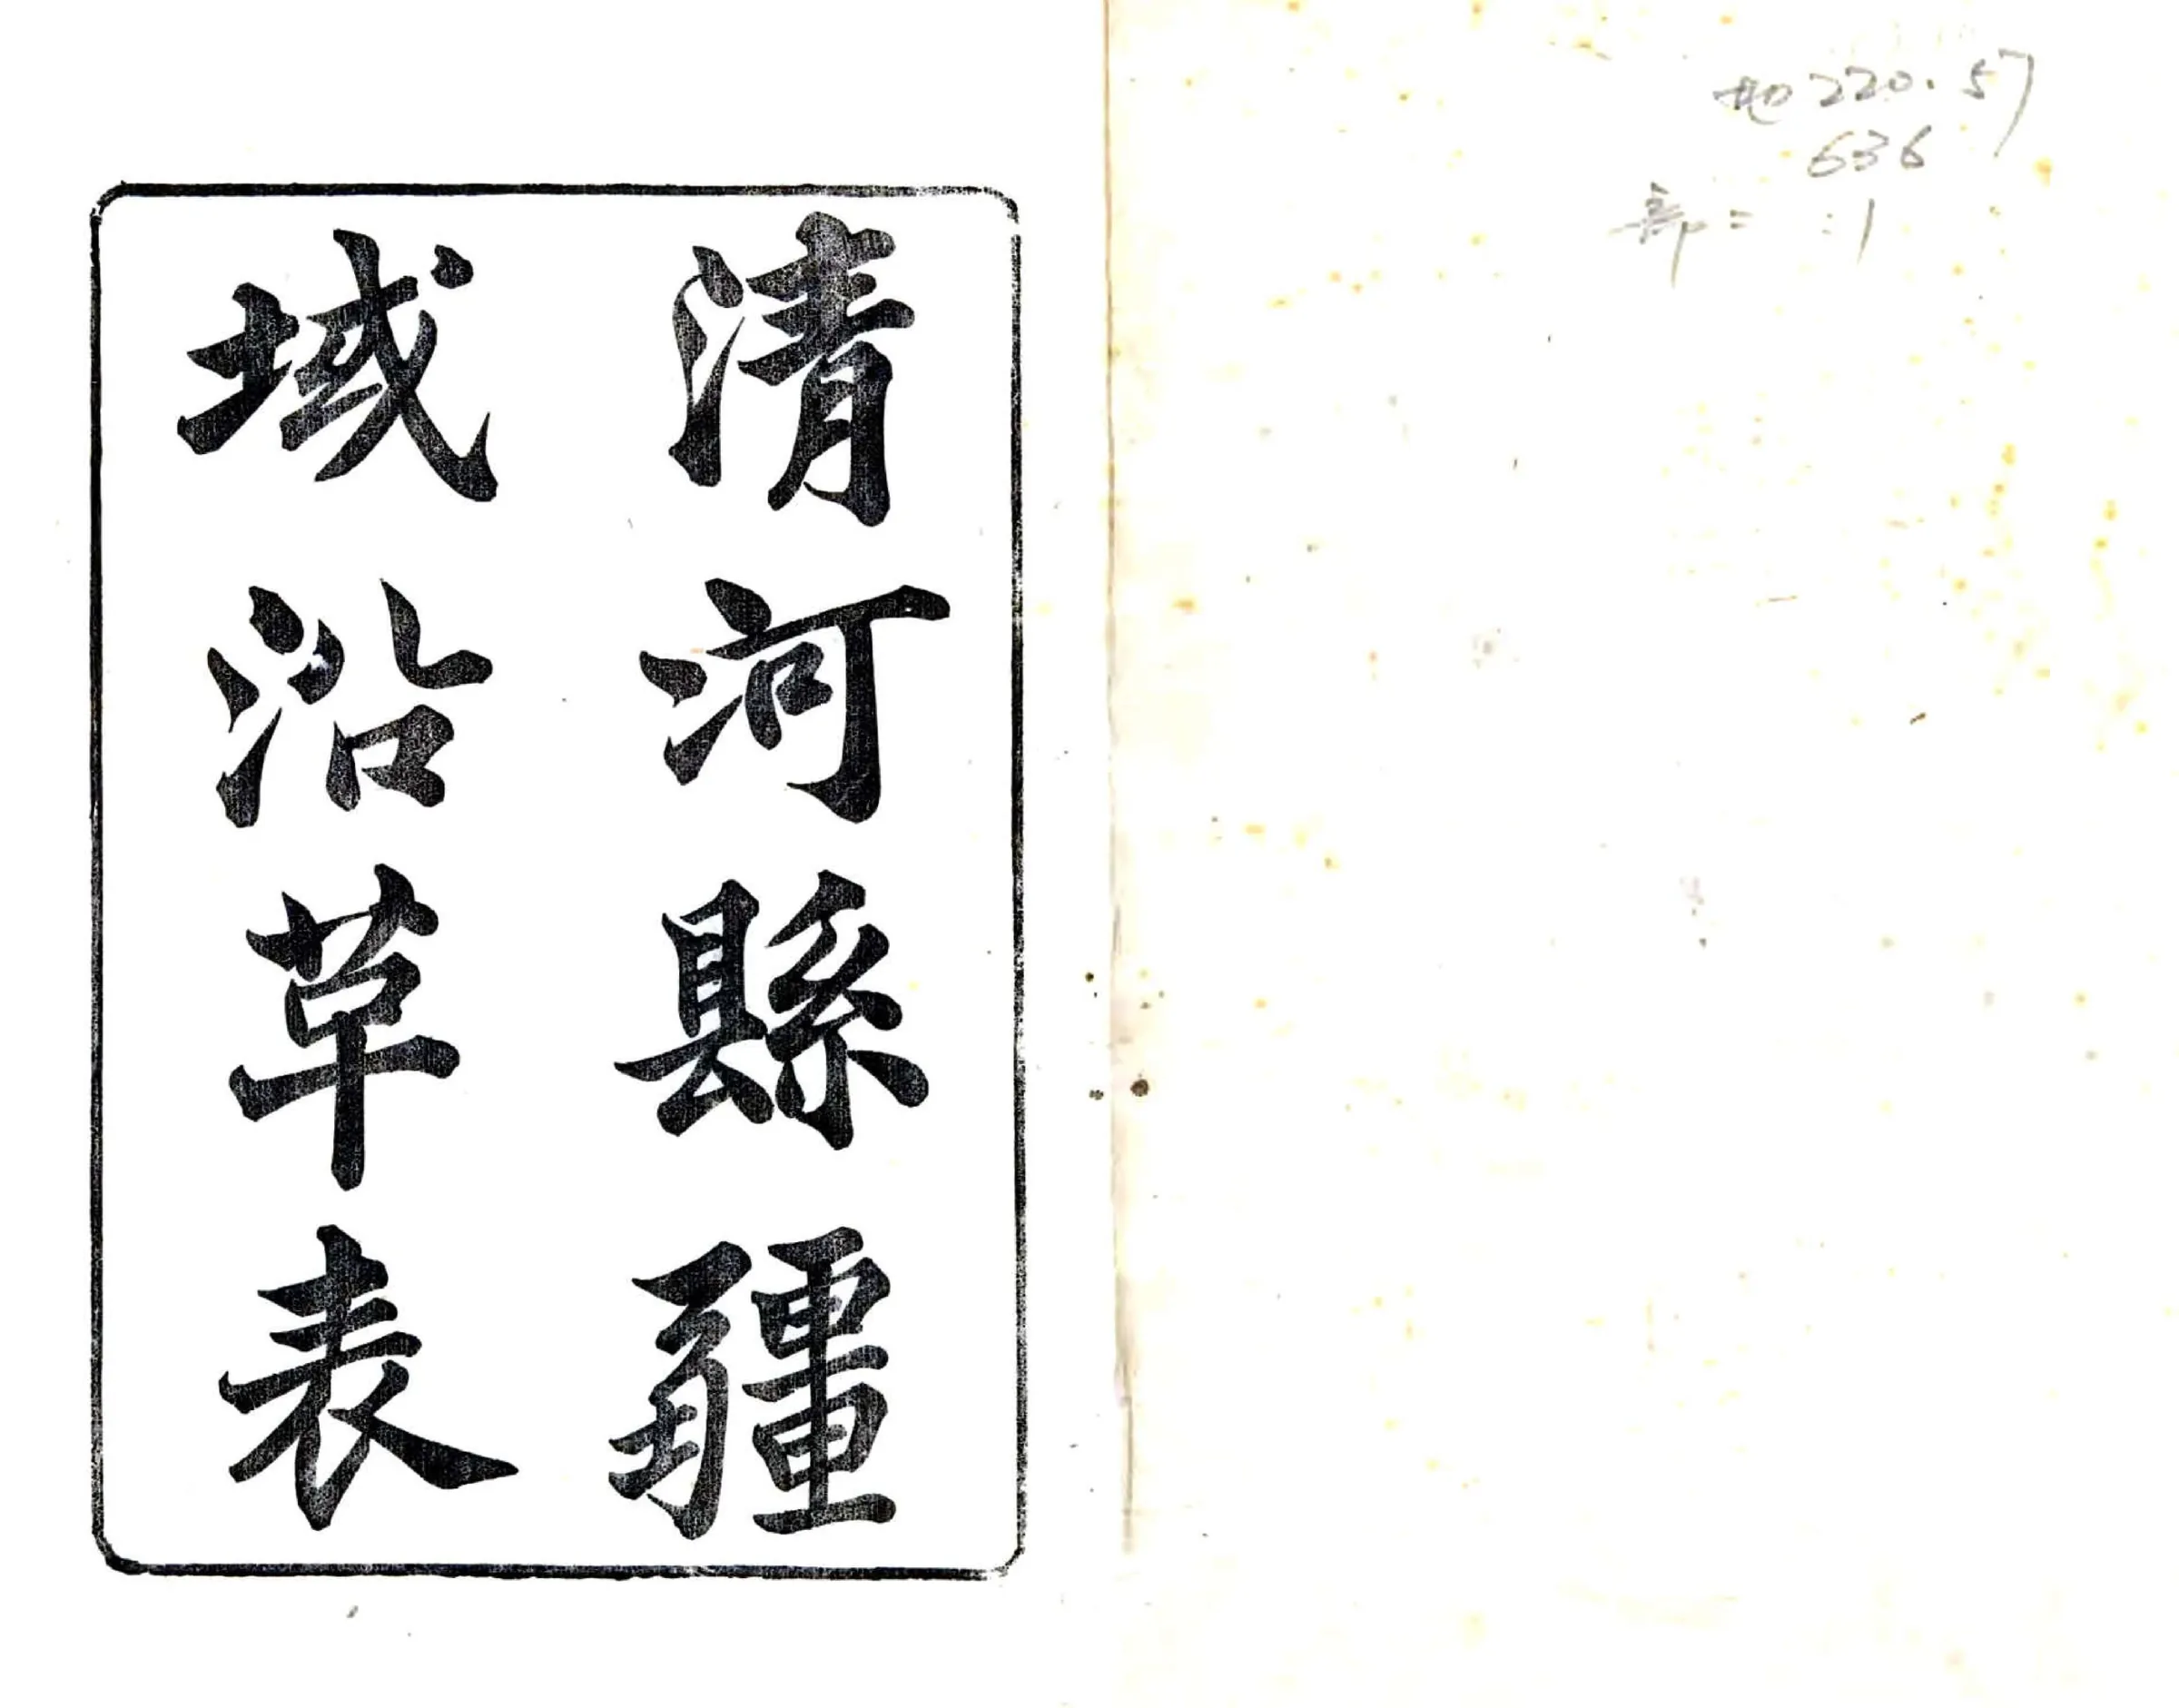 地220.57
636
部二 :1
清河縣疆
域沿革表